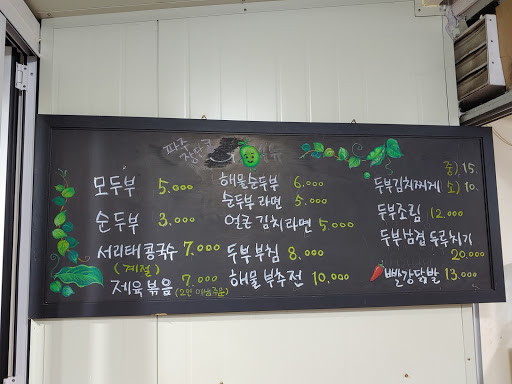 파주
장단콩
메뉴
모두부 5.000
순두부 3.000
서리태콩국수 7.000
(계절)
제육볶음 7.000
(2인 이상주문)
해물순두부 6.000
순두부라면 5.000
얼큰김치라면 5.000
두부부침 8.000
해물부추전 10.000
중) 15.
두부김치찌게 소) 10.
두부조림 12.000
두부삼겹두루치기
20.000
빨강닭발 13.000